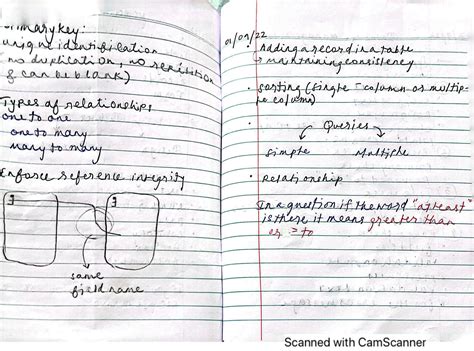 Primary key:
unique identification
no duplication, no repitition
& can be blank)
Types of relationships
one to one
one to many
many to many
Enforce reference integrity
same
field name
01/04/22
• Adding a record in a table
→ maintaining consistency
• sorting (single - column or multip-
le column)
Queries
simple Multiple
• Relationship
In a question if the word "atleast"
is there it means greater than
or = to
Scanned with CamScanner